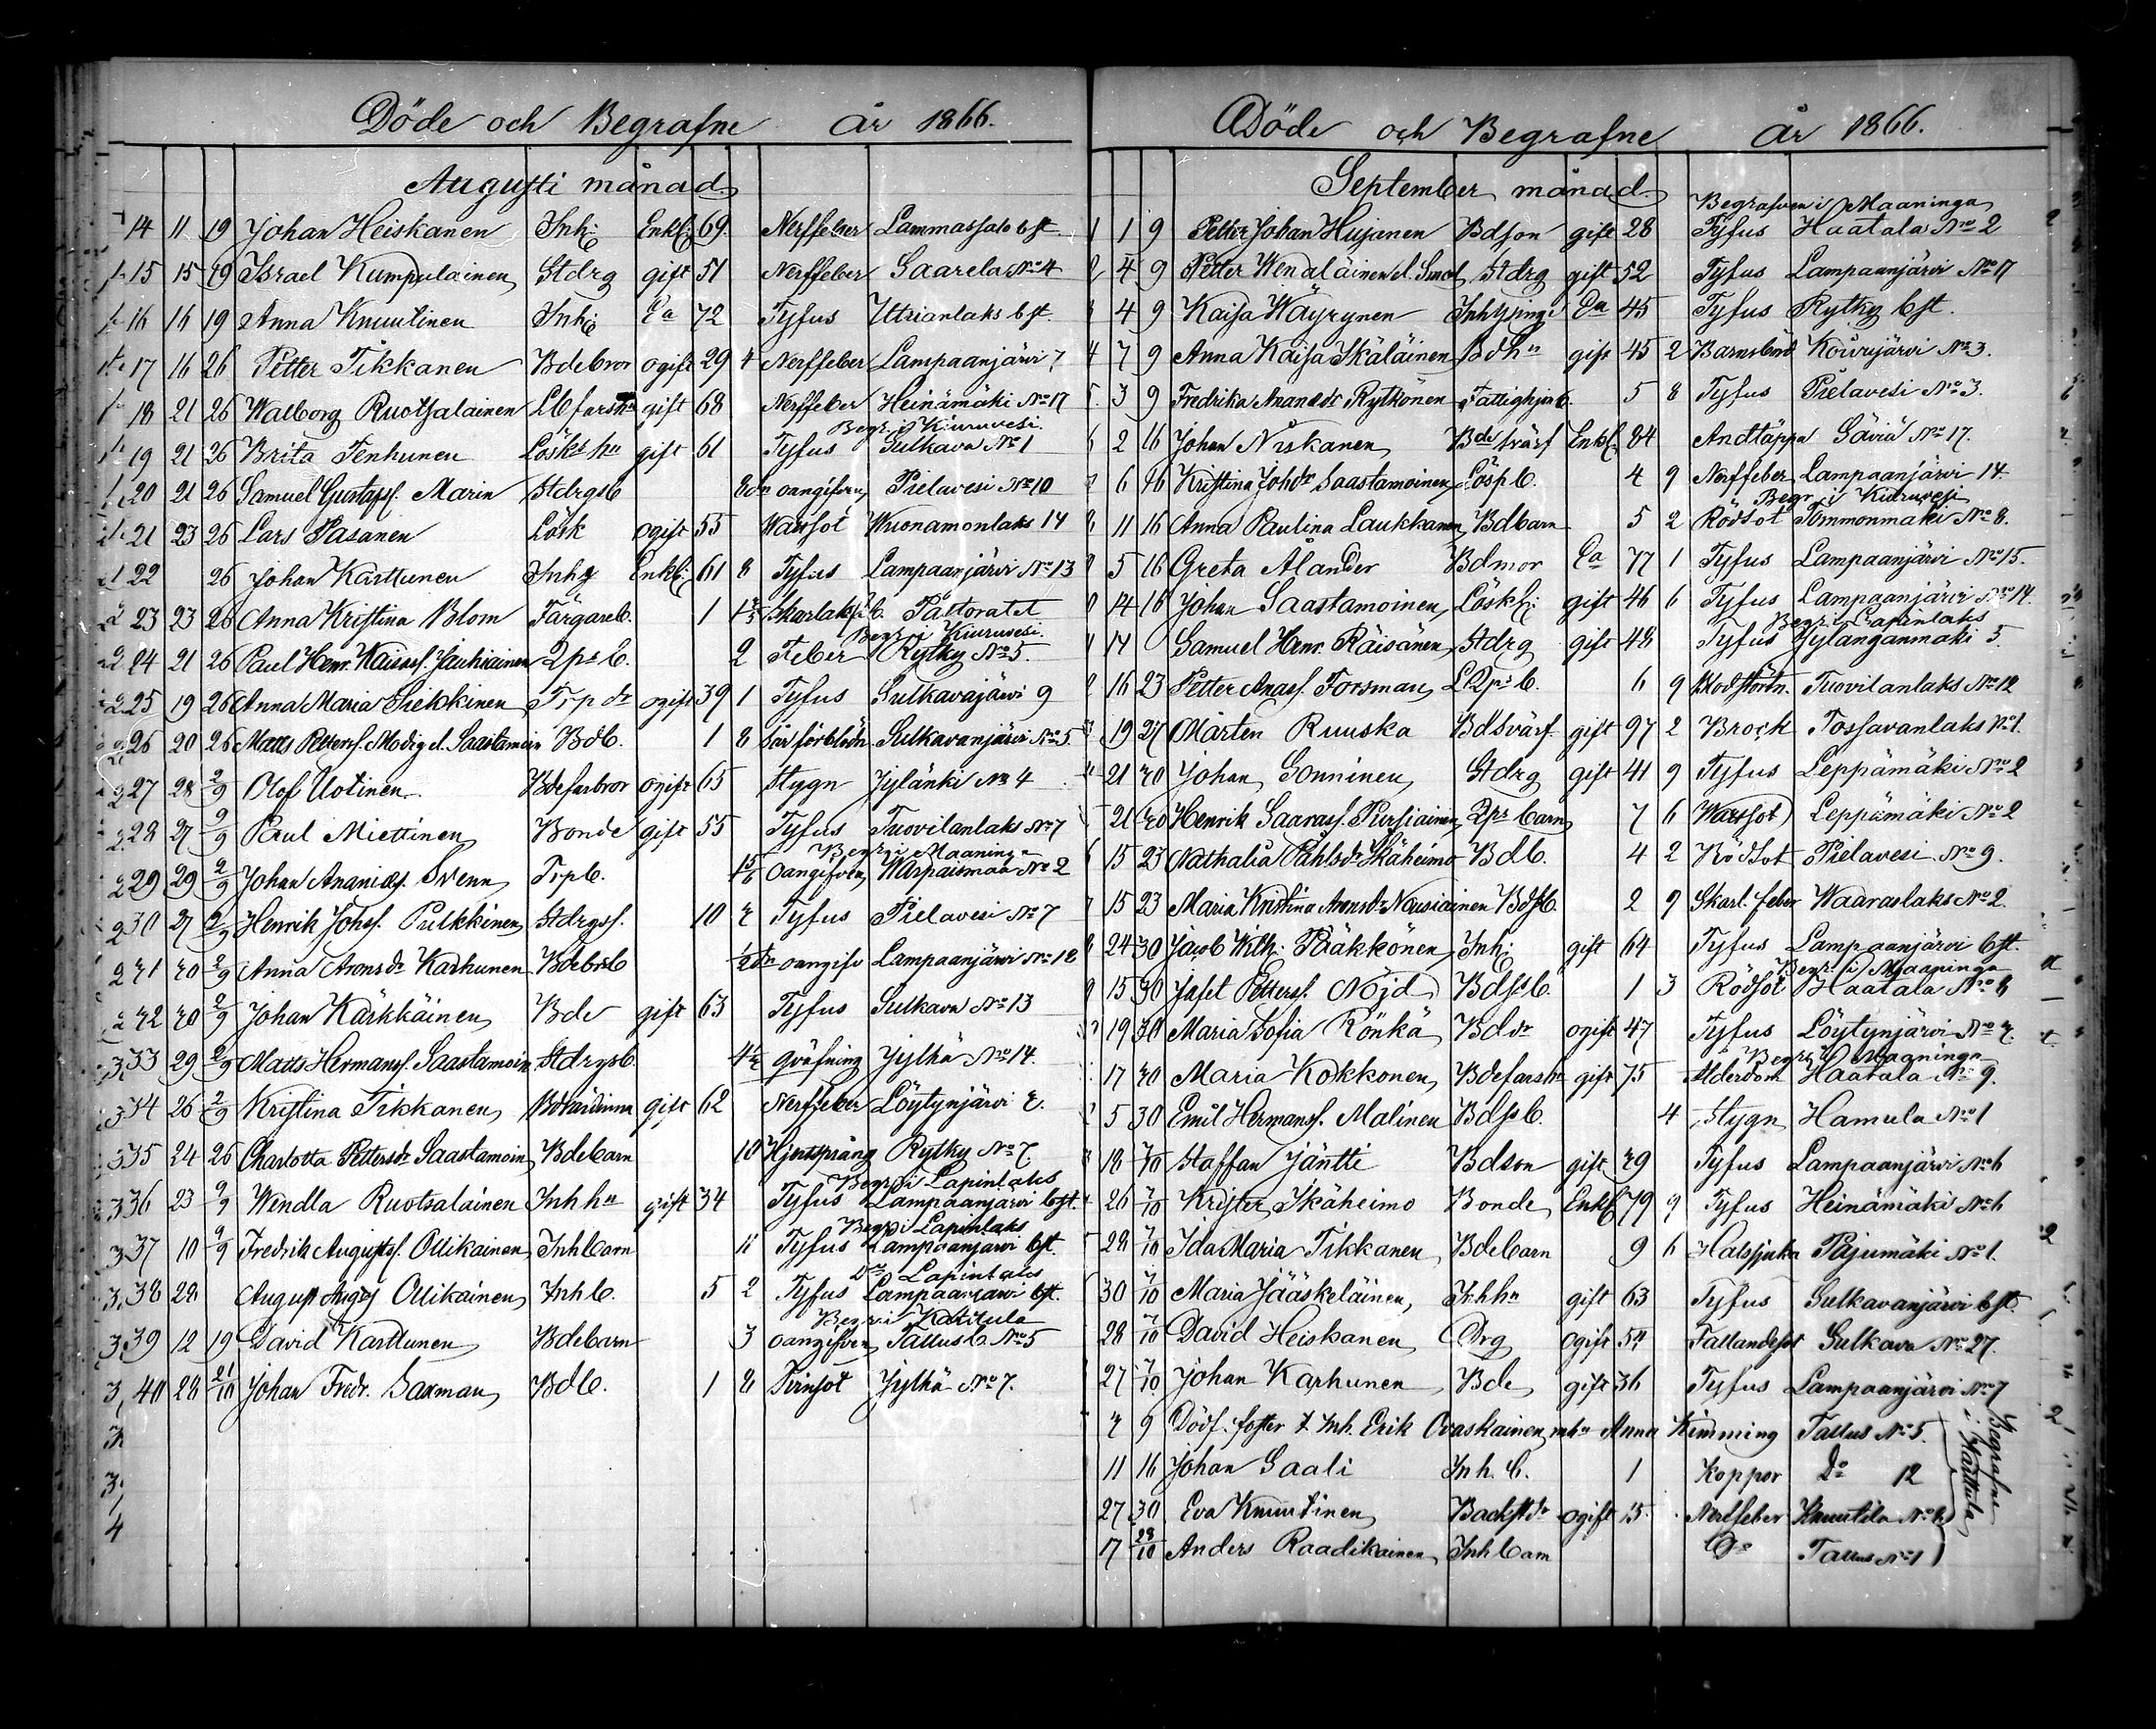 Döde och Begrafne år 1866.
Augusti månad
14 11 19 Johan Heiskanen Inh: Enkl: 69 Nerffeber Lammassalo bst.
15 15 19 Israel Kumpulainen Stdrg gift 51 Nerffeber Saarela No 4
16 16 19 Anna Knuutinen Inh: Ea 72 Tyfus Utrianlaks bst.
17 16 26 Petter Tikkanen Bdebror ogift 29 4 Nerffeber Lampaanjärvi 7
18 21 26 Walborg Ruotsalainen gift 68 Nerffeber Heinämäki No 17
Begr. i Kiuruvesi.
19 21 26 Brita Tenhunen Lösk hu gift 61 Tyfus Sulkava No 1
20 21 26 Samuel Gustafss. Marin Stdrgsb 8 dn oangifven Pielavesi No 10
21 23 26 Lars Pasanen Lösk ogift 55 Wattsot Wuonamonlaks 14
22 26 Johan Karttunen Inhg Enkl: 61 8 Tyfus Lampaanjärvi No 13
23 23 26 Anna Kristina Blom Färgareb. 1 Skarlaksfb. Pastoratet
Begr. i Kiuruvesi.
24 21 26 Paul Henr. Jauhiainen 2 Feber Rytky No 5.
25 19 26 Anna Maria Siekkinen Trp dr ogift 39 1 Tyfus Sulkavajärvi 9
26 20 26 Matts Petterss. Modig el. Saastamoin Bdb. 1 8 förblödn. Sulkavanjärvi No 5
27 28 2/9 Olof Uotinen Bdefarbror ogift 65 Stygn Jylänki No 4
28 27 9/9 Paul Miettinen Bonde gift 55 Tyfus Tuovilanlaks No 7
Begr. i Maaninga
29 29 2/9 Johan Ananiass. Svenn Trpb. oangifven Warpaismaa No 2
30 27 2/9 Henrik Johss. Pulkkinen Stdrgss. 10 Tyfus Pielavesi No 7
31 30 2/9 Anna Aronsdr Karhunen Bdebrb oangifv Lampaanjärvi No 18
32 30 2/9 Johan Kärkkäinen Bde gift 63 Tyfus Sulkava No 13
33 29 2/9 Matts Hermanss. Saastamoin Stdrgsb. qväfning Jylhä No 14.
34 26 2/9 Kristina Tikkanen Bdvärdinna gift 62 Nerffeber Löytynjärvi 3.
35 24 26 Charlotta Pettersdr Saastamoin Bdebarn 10 Hjertspräng Rytky No 7
Begr. i Lapinlaks
36 23 9/9 Wendla Ruotsalainen Inh hu gift 34 Tyfus Lampaanjärvi bst.
Begr. i Lapinlaks
37 10 9/9 Fredrik Augustss. Ollikainen Inhbarn 11 Tyfus Lampaanjärvi bst.
Do Lapinlaks
38 28 August Augss Ollikainen Inhb. 5 2 Tyfus Lampaanjärvi bst.
Begr. i Karttula
39 12 19 David Karttunen Bdebarn 3 oangifven Tallusb. No 5
40 28 21/10 Johan Fredr. Saxman Bdb. 1 8 Tvinsot Jylhä No 7.
Döde och Begrafne år 1866.
September månad
Begrafven i Maaninga
1 1 9 Petter Johan Hujanen Bdson gift 28 Tyfus Haatala No 2
2 4 9 Petter Wenäläinen el. Smed Stdrg gift 52 Tyfus Lampaanjärvi No 17
3 4 9 Kaisa Wäyrynen Ea 45 Tyfus Rytky bst.
4 7 9 Anna Kaisa Ikäläinen Bdhu gift 45 2 Barnsbörd Koivujärvi No 3.
5. 3 9 Fredrika Ananiædr Rytkönen Fattighjonb. 5 8 Tyfus Pielavesi No 3.
6 2 16 Johan Niskanen Bde svärf Enkl: 84 Andtäppa Säviä No 17.
7 6 16 Kristina Johdr Saastamoinen Löspb. 4 9 Nerffeber Lampaanjärvi 14.
Begr. i Kiuruvesi
8 11 16 Anna Paulina Laukkanen Bdbarn 5 2 Rödsot Tommonmäki No 8.
9 5 16 Greta Ålander Bdmor Ea 77 1 Tyfus Lampaanjärvi No 15.
10 14 16 Johan Saastamoinen Löskk: gift 46 6 Tyfus Lampaanjärvi No 14.
Begr. i Lapinlaks
11 14 Samuel Henr. Räisänen Stdrg gift 48 Tyfus Jylänganmäki 5.
16 23 Petter Anass. Forsman 6 9 Blodstörtn. Tuovilanlaks No 12
19 27 Mårten Ruuska Bdsvärf. gift 97 2 Brock Tossavanlaks No 1.
21 30 Johan Sonninen Stdrg gift 41 9 Tyfus Leppämäki No 2
21 30 Henrik Saarass. Pursiainen barn 7 6 Wattsot Leppämäki No 2
15 23 Nathalia Påhlsdr Ikäheimo Bdb. 4 2 Rödsot Pielavesi No 9.
15 23 Maria Kristina Aronsdr Nousiainen Bdsb. 2 9 Skarl. feber Waaraslaks No 2.
24 30 Jacob Wilh: Pääkkönen Inh: gift 64 Tyfus Lampaanjärvi bst.
Begr. i Maaninga
15 30 Jafet Petterss. Nöjd Bdssb. 1 3 Rödsot Haatala No 8
19 30 Maria Sofia Rönkä Bddr ogift 47 Tyfus Löytynjärvi No 3.
Begr. i Maaninga
17 30 Maria Kokkonen Bdefarshu gift 75 Ålderdom Haatala No 9.
5 30 Emil Hermanss. Malinen Bdssb. 4 Stygn Hamula No 1
18 7/10 Staffan Jäntti Bdson gift 29 Tyfus Lampaanjärvi No 6
26 7/10 Krister Ikäheimo Bonde Enkl 79 9 Tyfus Heinämäki No 6
28 7/10 Ida Maria Tikkanen Bdebarn 9 6 Halssjuka Pajumäki No 1.
30 7/10 Maria Jääskeläinen Inhhu gift 63 Tyfus Sulkavanjärvi bst.
28 7/10 David Heiskanen Drg ogift 54 Fallandesot Sulkava No 27.
27 7/10 Johan Karhunen Bde gift 36 Tyfus Lampaanjärvi No 7
3 9 Dödf. foster t. Inh. Erik Ovaskainen o. hu Anna Kimming Tallus No 5.
11 16 Johan Saali Inh. b. 1 Koppor Do 12
27 30 Eva Knuutinen Backstdr ogift 15 Nerffeber Knuutila No 6
17 28/10 Anders Raadikainen Inhbarn Do Tallus No 1
Begrafne i Karttula